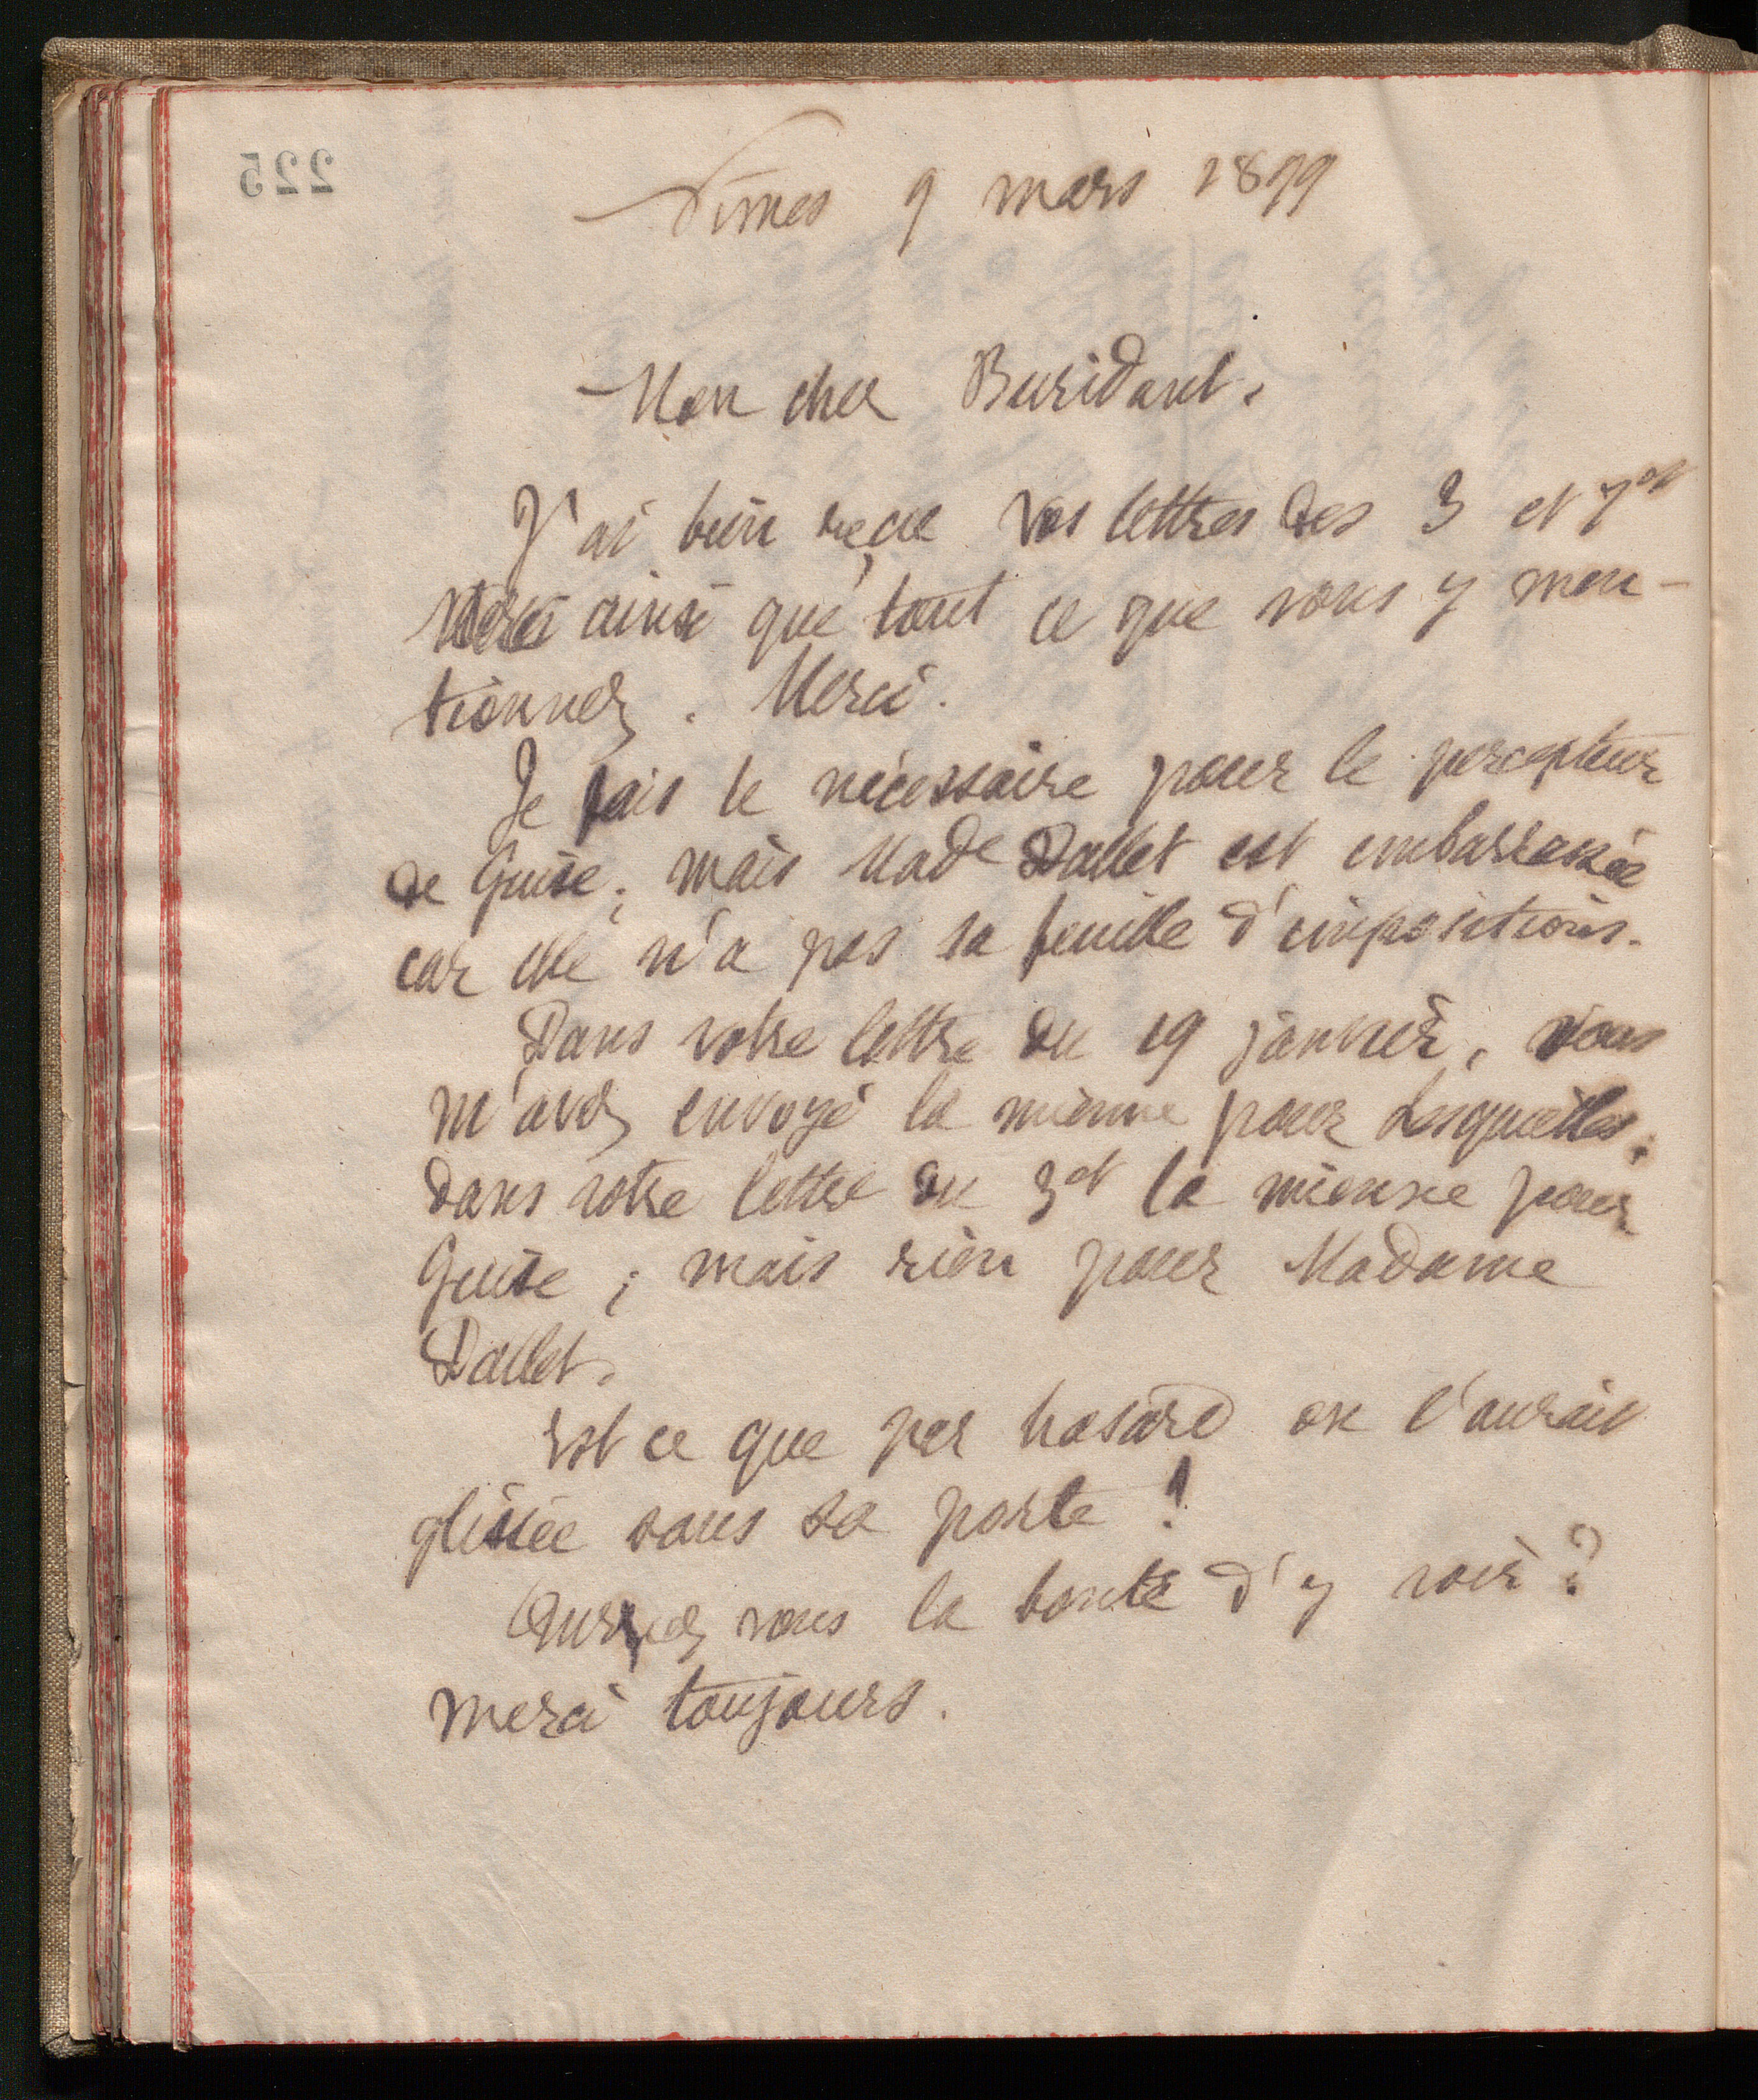 225
Nîmes 9 mars 1899
Mon cher Buridant,
J'ai bien reçu vos lettres des 3 et 7 ct
ainsi que tout ce que vous y men-
tionnez. Merci.
Je fais le nécessaire pour le percepteur
de Guise; mais Made Dallet est embarrassée
car elle n'a pas sa feuille d'impositions.
Dans votre lettre du 19 janvier, vous
m'avez envoyé la mienne pour Lesquielles;
dans votre lettre du 3 ct la mienne pour
Guise; mais rien pour Madame
Dallet.
Est ce que par hasard on l'aurait
glissée sous sa porte!
Auriez vous la bonté d'y voir?
Merci toujours.